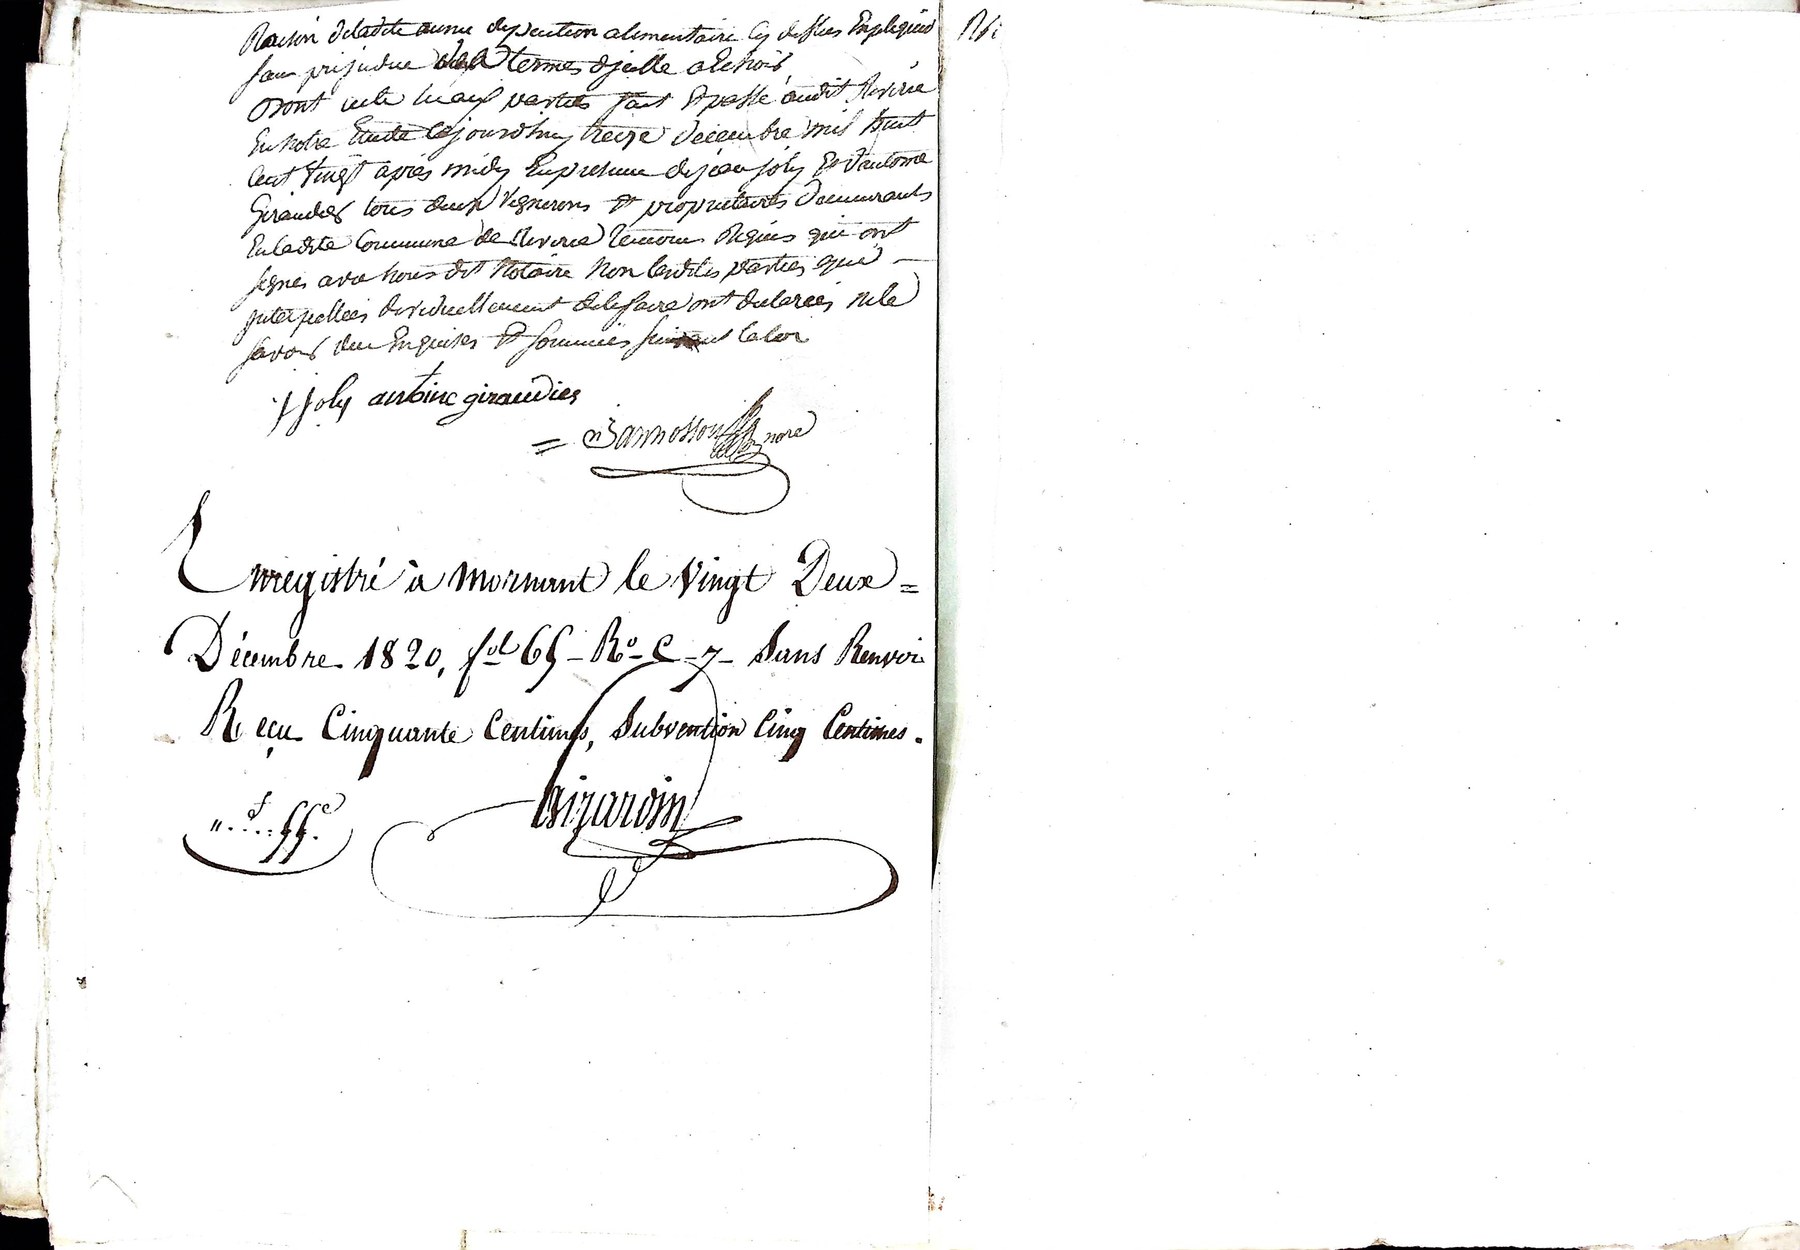 Raison de ladite année de pention alimentaire cy dessus Expliquée
sans préjudice des termes d'jcelle a Echoir,
Dont acte lu aux parties fait Et passé audit Riverie
En notre Etude Cejourdhuy treize décembre mil huit
Cent Vingt après midy En présence de jean joly Et d'antoine
Giraudier tous deux Vignerons Et propriétaires Demeurants
En ladite Commune de Riverie témoins Requis qui ont
signés avec nous dit Notaire Non lesdites parties que
interpellées dividuellement de le faire ont declarées ne le
savoir deu Enquises Et sommées suivant la loi
j joly antoine giraudier
nore
Enregistré à Mornant le Vingt Deux =
Décembre 1820, fol 65 - Ro - C - 7 - Sans Renvoi
Reçu Cinquante Centimes, Subvention Cinq Centimes.
Girardin
" f .... 55 c.